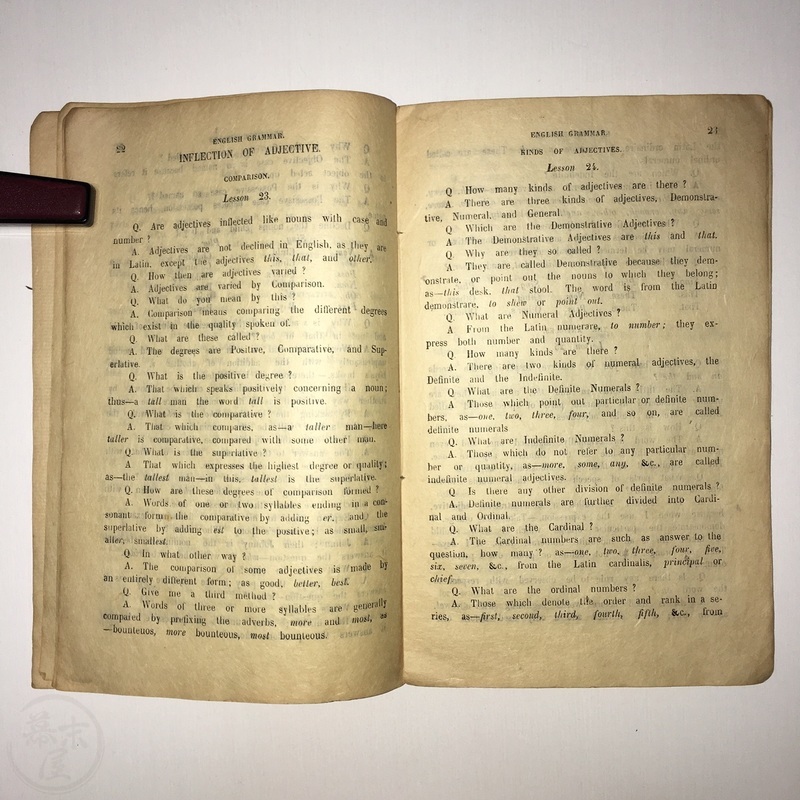 22
ENGLISH GRAMMAR.
INFLECTION OF ADJECTIVE.
COMPARISON.
Lesson 23.
Q. Are adjectives inflected like nouns with case and
number ?
A. Adjectives are not declined in English, as they are
in Latin, except the adjectives this, that, and other.
Q. How then are adjectives varied ?
A. Adjectives are varied by Comparison.
Q. What do you mean by this ?
A. Comparison means comparing the different degrees
which exist in the quality spoken of.
Q. What are these called ?
A. The degrees are Positive, Comparative, and Sup-
erlative.
Q. What is the positive degree ?
A. That which speaks positively concerning a noun;
thus—a tall man the word tall is positive.
Q. What is the comparative ?
A. That which compares, as—a taller man—here
taller is comparative, compared with some other man.
Q. What is the superlative ?
A That which expresses the highest degree or quality;
as—the tallest man—in this, tallest is the superlative.
Q. How are these degrees of comparison formed ?
A. Words of one or two syllables ending in a con-
sonant form the comparative by adding er, and the
superlative by adding est to the positive; as small, sm-
aller, smallest.
Q. In what other way ?
A. The comparison of some adjectives is made by
an entirely different form; as good, better, best.
Q. Give me a third method ?
A. Words of three or more syllables are generally
compared by prefixing the adverbs, more and most, as
—bounteuos, more bounteous, most bounteous.
ENGLISH GRAMMAR
23
KINDS OF ADJECTIVES.
Lesson 24.
Q How many kinds of adjectives are there ?
A There are three kinds of adjectives, Demonstra-
tive, Numeral, and General.
Q Which are the Demonstrative Adjectives ?
A The Demonstrative Adjectives are this and that.
Q. Why are they so called ?
A They are called Demonstrative because they dem-
onstrate, or point out the nouns to which they belong;
as—this desk, that stool. The word is from the Latin
demonstrare, to shew or point out.
Q. What are Numeral Adjectives ?
A From the Latin numerare, to number; they ex-
press both number and quantity.
Q. How many kinds are there ?
A. There are two kinds of numeral adjectives, the
Definite and the Indefinite.
Q. What are the Definite Numerals ?
A Those which point out particular or definite num-
bers, as—one, two, three, four, and so on, are called
definite numerals
Q. What are Indefinite Numerals ?
A. Those which do not refer to any particular num-
ber or quantity, as—more, some, any, &c., are called
indefinite numeral adjectives.
Q. Is there any other division of definite numerals ?
A. Definite numerals are further divided into Cardi-
nal and Ordinal.
Q. What are the Cardinal ?
A. The Cardinal numbers are such as answer to the
question, how many ? as—one, two, three, four, five,
six, seven, &c., from the Latin cardinalis, principal or
chief.
Q. What are the ordinal numbers ?
A. Those which denote the order and rank in a se-
ries, as—first, second, third, fourth, fifth, &c., from
幕末屋